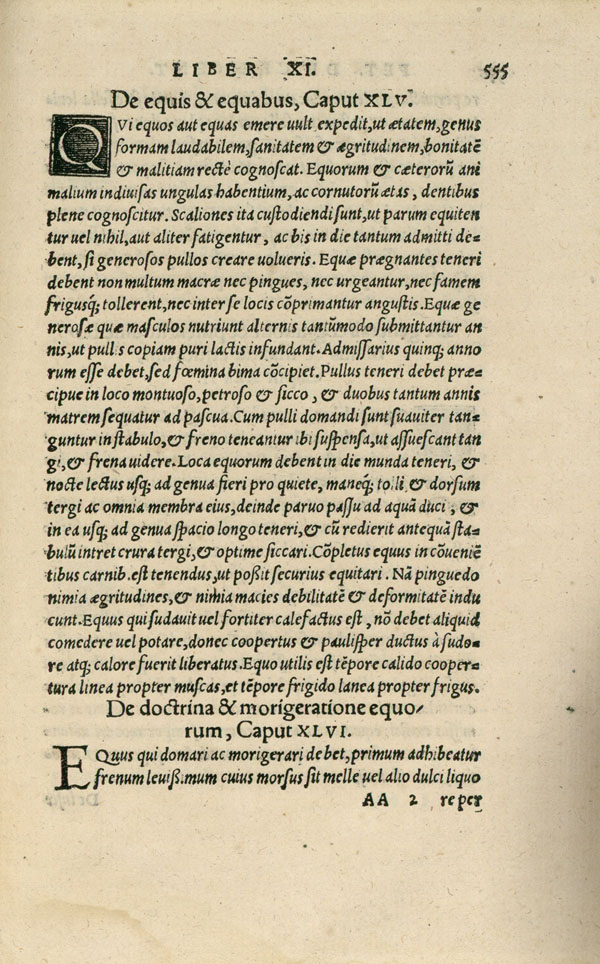 LIBER XI. 555
De equis & equabus, Caput XLV.
QVi equos aut equas emere uult expedit, ut ætatem, genus
formam laudabilem, sanitatem & ægritudinem, bonitatẽ
& malitiam rectè cognoscat. Equorum & cæterorũ ani
malium indiuisas ungulas habentium, ac cornutorũ ætas, dentibus
plene cognoscitur. Scaliones ita custodiendi sunt, ut parum equiten
tur uel nihil, aut aliter fatigentur, ac bis in die tantum admitti de-
bent, si generosos pullos creare uolueris. Equæ prægnantes teneri
debent non multum macræ nec pingues, nec urgeantur, nec famem
frigusq; tollerent, nec inter se locis cõprimantur angustis. Equæ ge
nerosæ quæ masculos nutriunt alternis tantũmodo submittantur an
nis, ut pullis copiam puri lactis infundant. Admissarius quinq; anno
rum esse debet, sed fœmina bima cõcipiet. Pullus teneri debet præ-
cipue in loco montuoso, petroso & sicco, & duobus tantum annis
matrem sequatur ad pascua. Cum pulli domandi sunt suauiter tan-
guntur in stabulo, & freno teneantur ibi suspensa, ut assuescant tan
gi, & frena uidere. Loca equorum debent in die munda teneri, &
nocte lectus usq; ad genua fieri pro quiete, maneq; tolli & dorsum
tergi ac omnia membra eius, deinde paruo passu ad aquã duci, &
in ea usq; ad genua spacio longo teneri, & cũ redierit antequã sta-
bulũ intret crura tergi, & optime siccari. Cõpletus equus in cõueniẽ
tibus carnib. est tenendus, ut poßit securius equitari. Nã pinguedo
nimia ægritudines, & nimia macies debilitatẽ & deformitatẽ indu
cunt. Equus qui sudauit uel fortiter calefactus est, nõ debet aliquid
comedere uel potare, donec coopertus & paulisper ductus à sudo-
re atq; calore fuerit liberatus. Equo utilis est tẽpore calido cooper-
tura linea propter muscas, et tẽpore frigido lanea propter frigus.
De doctrina & morigeratione equo-
rum, Caput XLVI.
EQuus qui domari ac morigerari debet, primum adhibeatur
frenum leuiß.mum cuius morsus sit melle uel alio dulci liquo
AA 2 reper